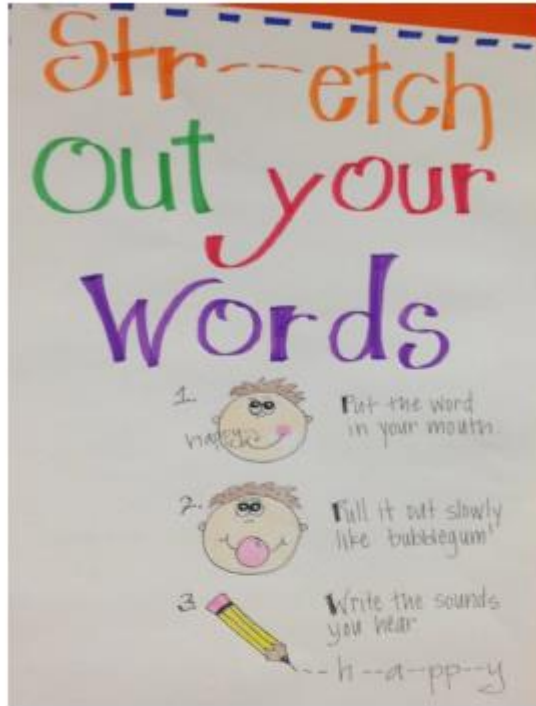 Str---etch
Out your
Words
1.
happy
Put the word
in your mouth.
2.
Pull it out slowly
like bubblegum!
3.
Write the sounds
you hear
---h--a--pp--y